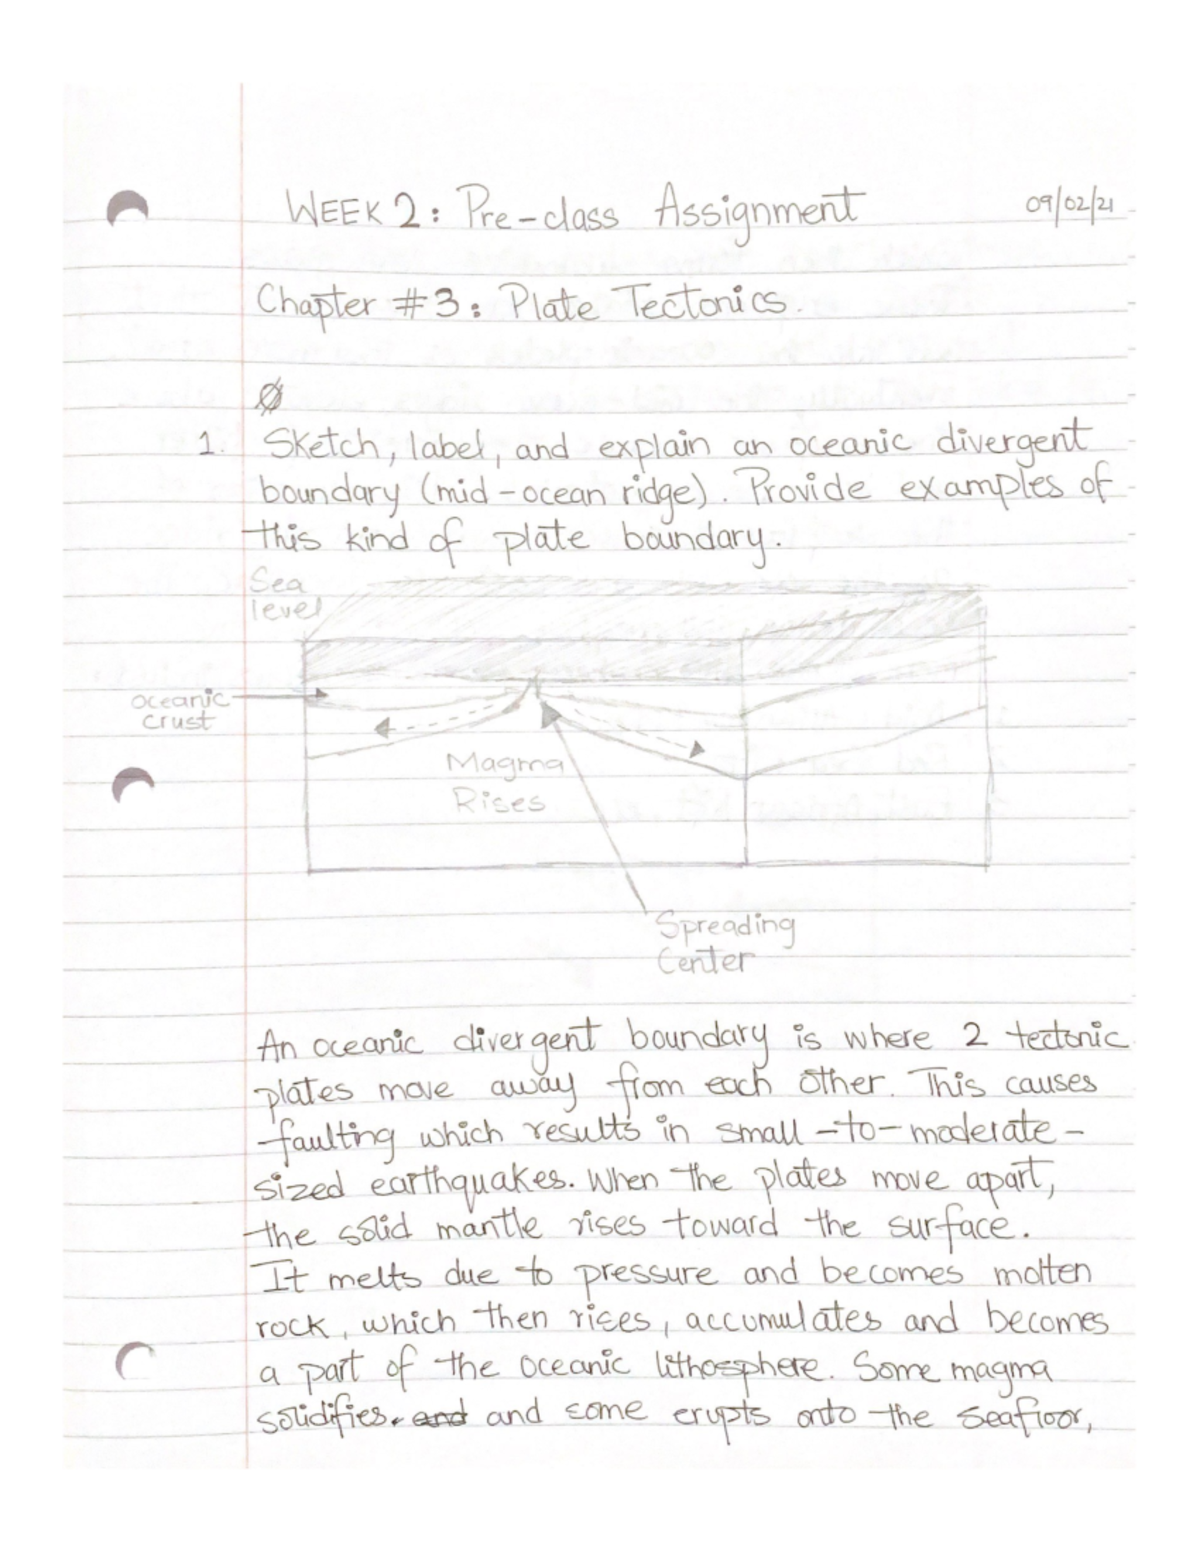 WEEK 2: Pre-class Assignment 09/02/21
Chapter #3: Plate Tectonics.
1. Sketch, label, and explain an oceanic divergent
boundary (mid-ocean ridge). Provide examples of
this kind of plate boundary.
Sea
level
oceanic
crust
Magma
Rises
Spreading
Center
An oceanic divergent boundary is where 2 tectonic
plates move away from each other. This causes
faulting which results in small-to-moderate-
sized earthquakes. When the plates move apart,
the solid mantle rises toward the surface.
It melts due to pressure and becomes molten
rock, which then rises, accumulates and becomes
a part of the oceanic lithosphere. Some magma
solidifies. and and some erupts onto the seafloor,